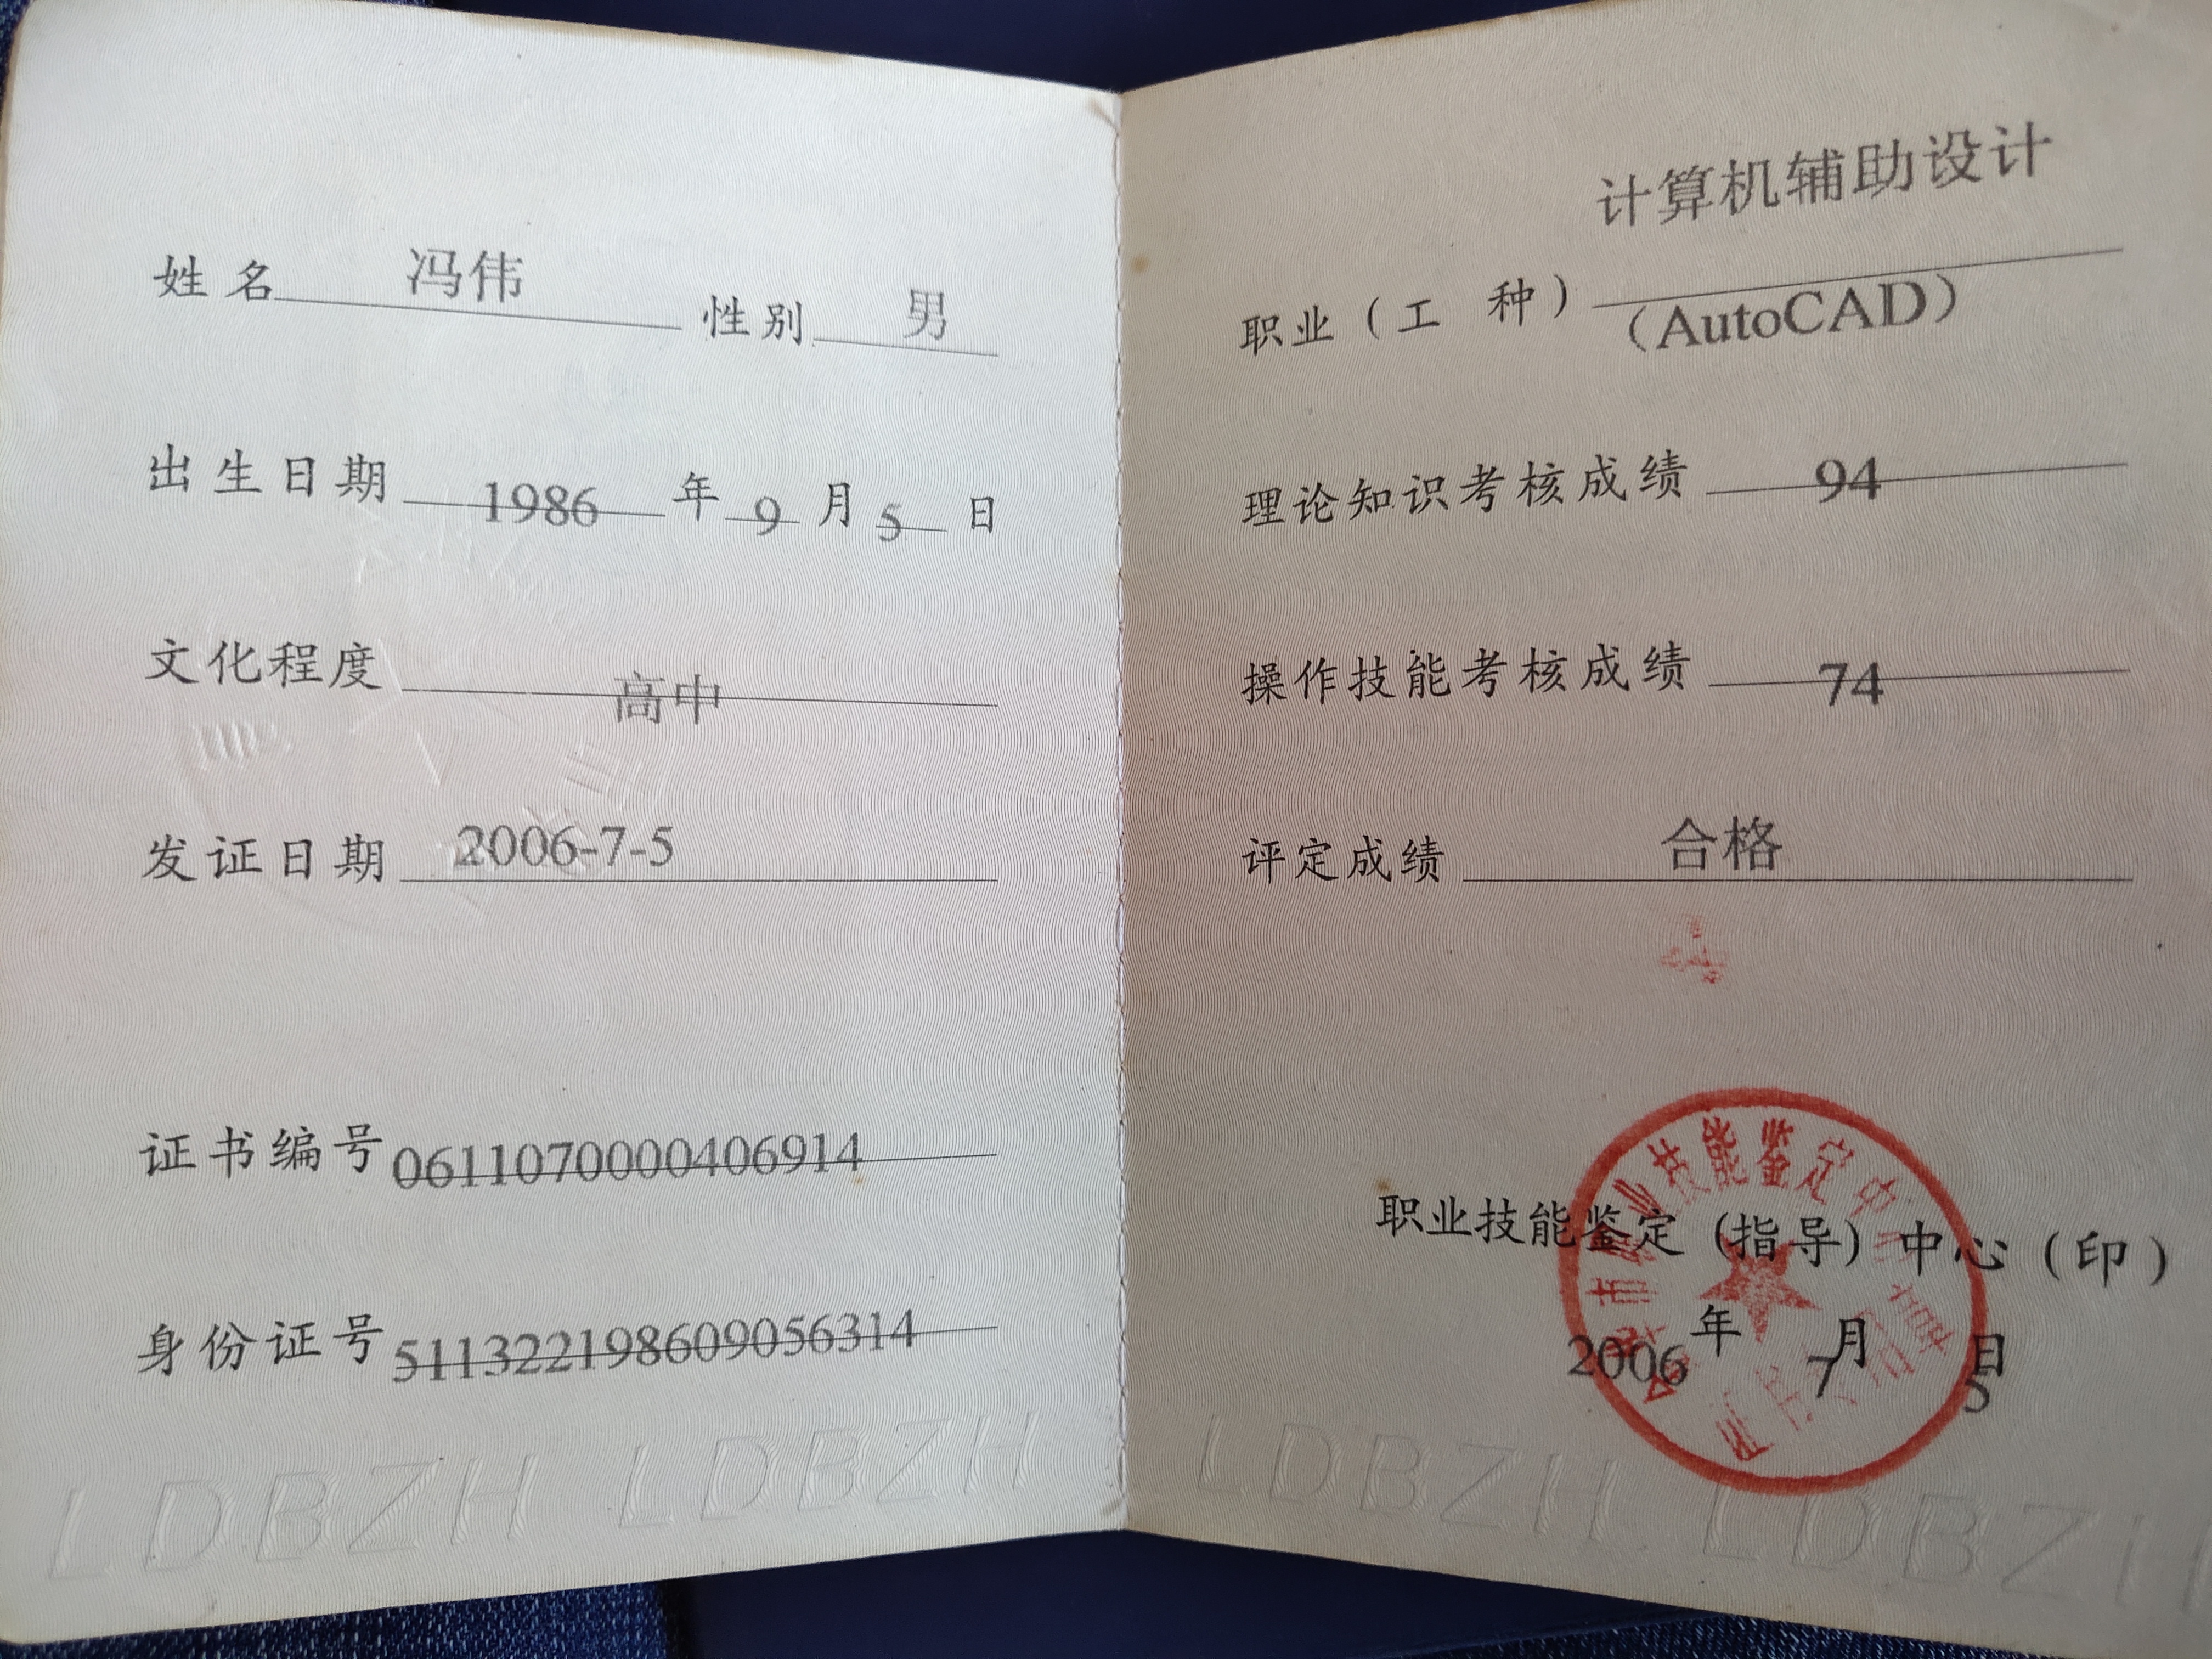 姓名 冯伟 性别 男
出生日期 1986 年 9 月 5 日
文化程度 高中
发证日期 2006-7-5
证书编号 0611070000406914
身份证号 511322198609056314
LDBZH LDBZH
计算机辅助设计
职业（工 种）（AutoCAD）
理论知识考核成绩 94
操作技能考核成绩 74
评定成绩 合格
职业技能鉴定（指导）中心（印）
2006 年 7 月 5 日
市职业技能鉴定中心
LDBZH LDBZH